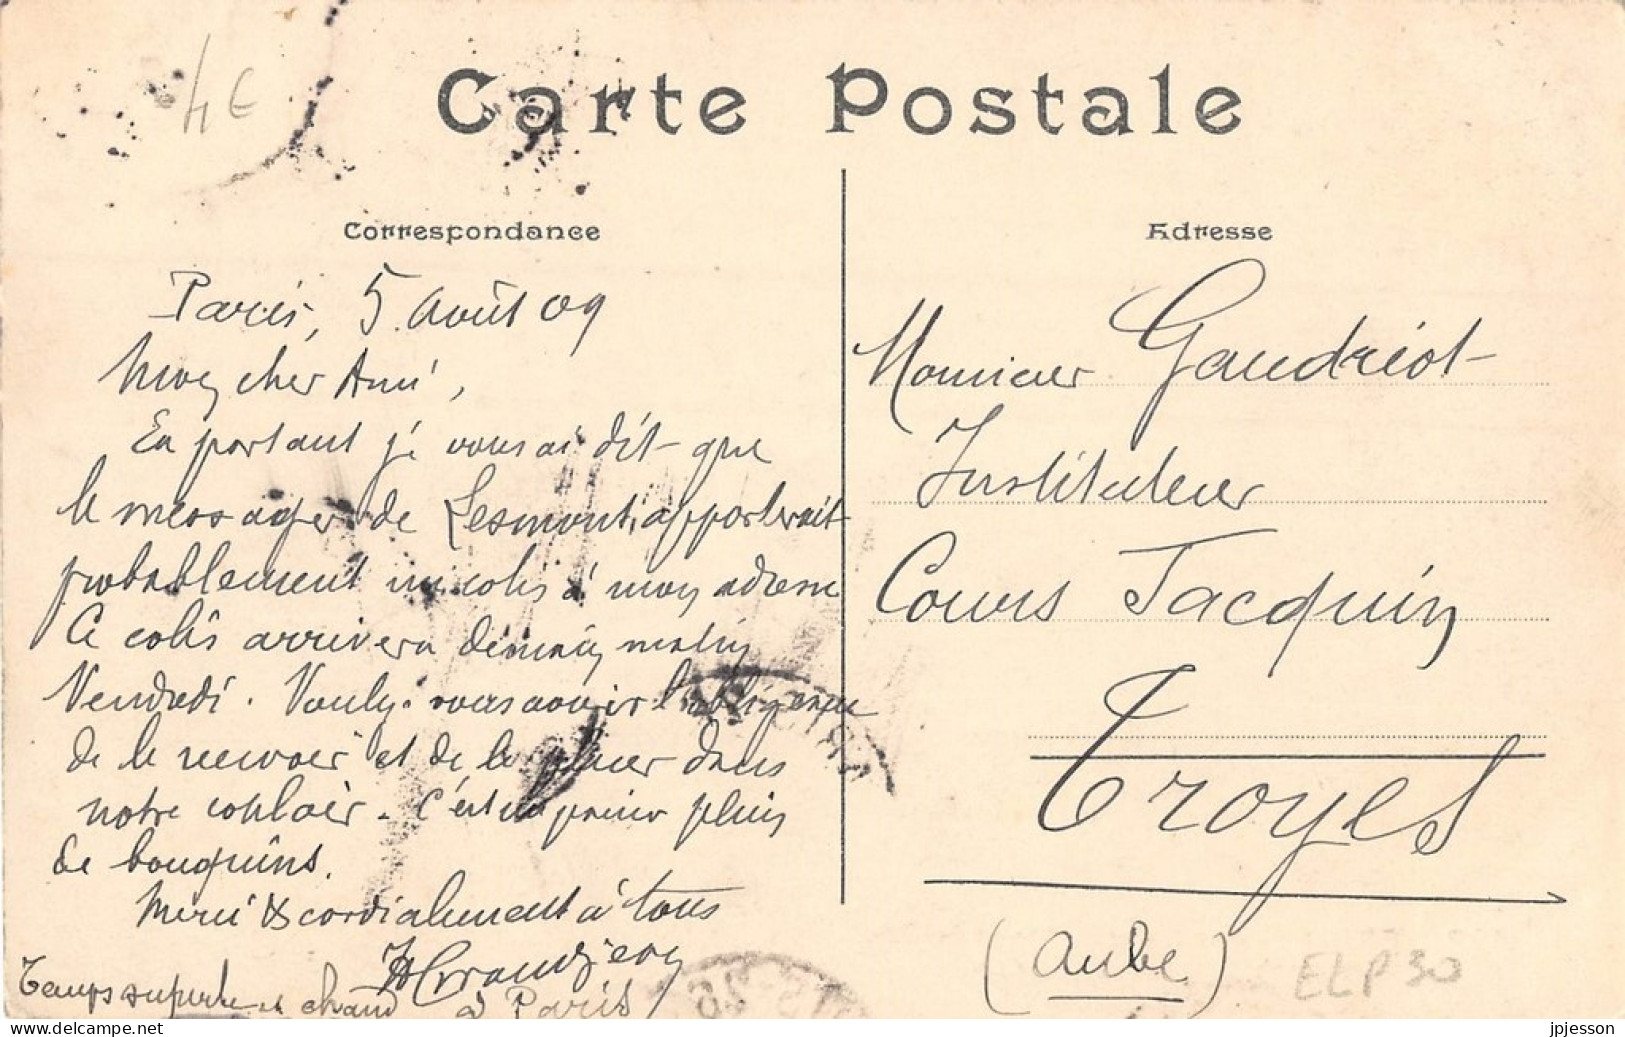 4 €
Carte Postale
Correspondance
Adresse
Paris, 5 Août 09
Mon cher Ami,
En partant je vous ai dit que
le messager de Lesmont, apporterait
probablement un colis à mon adresse
Ce colis arrivera demain matin
Vendredi. Voulez-vous avoir l'obligeance
de le recevoir et de le placer dans
notre couloir. C'est un panier plein
de bouquins.
Merci & cordialement à tous
Temps superbe et chaud à Paris
Monsieur Gaudriot
Instituteur
Cours Jacquin
Troyes
(Aube)
ELP 30
jpjesson